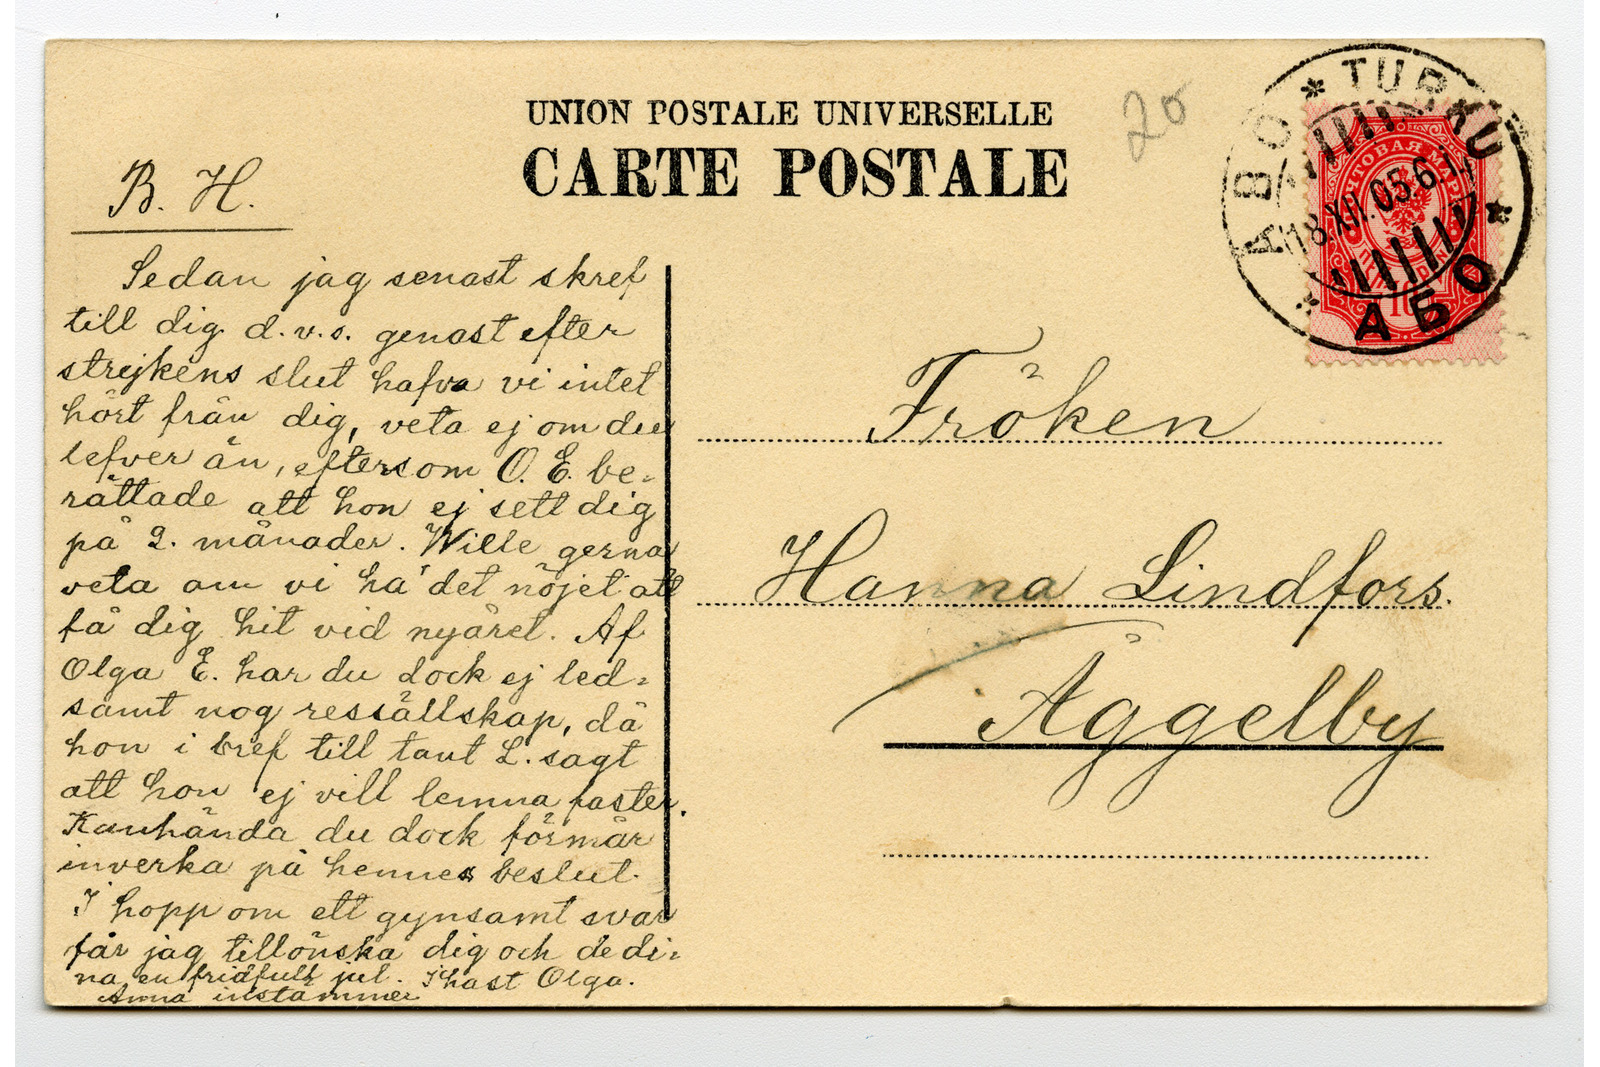 UNION POSTALE UNIVERSELLE
CARTE POSTALE
20
ABO * TURKU * АБО *
18.XII.05.6.
ПОЧТОВАЯ МАРКА
10
B. H.
Sedan jag senast skref
till dig d.v.s. genast efter
strejkens slut hafva vi intet
hört från dig, veta ej om du
lefver än, eftersom O. E. be-
rättade att hon ej sett dig
på 2. månader. Wille gerna
veta om vi ha' det nöjet att
få dig hit vid nyåret. Af
Olga E. har du dock ej led-
samt nog ressällskap, då
hon i bref till tant L. sagt
att hon ej vill lemna faster.
Kanhända du dock förmår
inverka på hennes beslut.
I hopp om ett gynsamt svar
får jag tillönska dig och de di-
na en fridfull jul. I hast Olga.
Anna instämmer
Fröken
Hanna Lindfors.
Åggelby